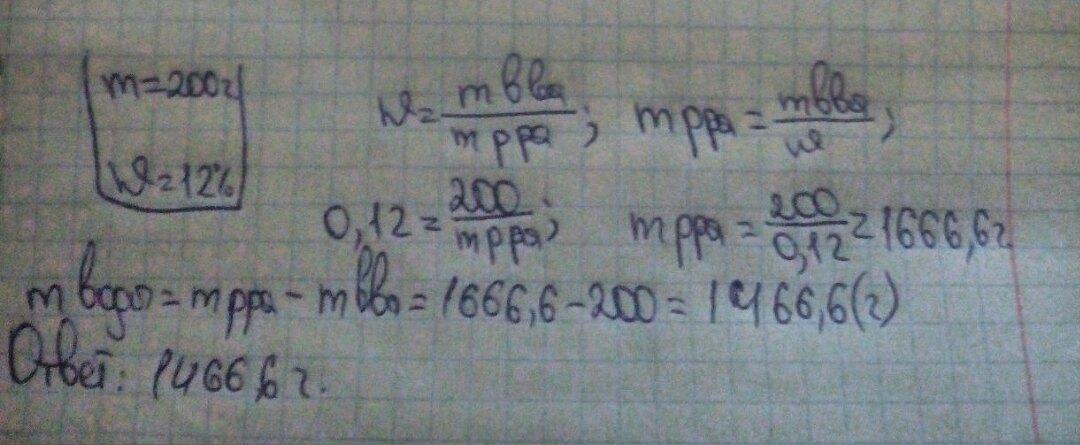 m=200г
w = m вва / m рра ; m рра = m вва / w ;
w=12%
0,12 = 200 / m рра ; m рра = 200 / 0,12 = 1666,6г
m воды = m рра - m вва = 1666,6 - 200 = 1466,6(г)
Ответ: 1466,6 г.